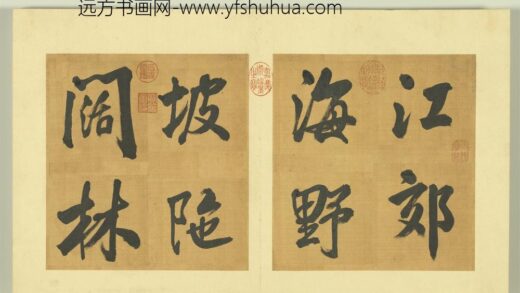 远方书画网-www.yfshuhua.com
江郊
海野
坡陁
阔林